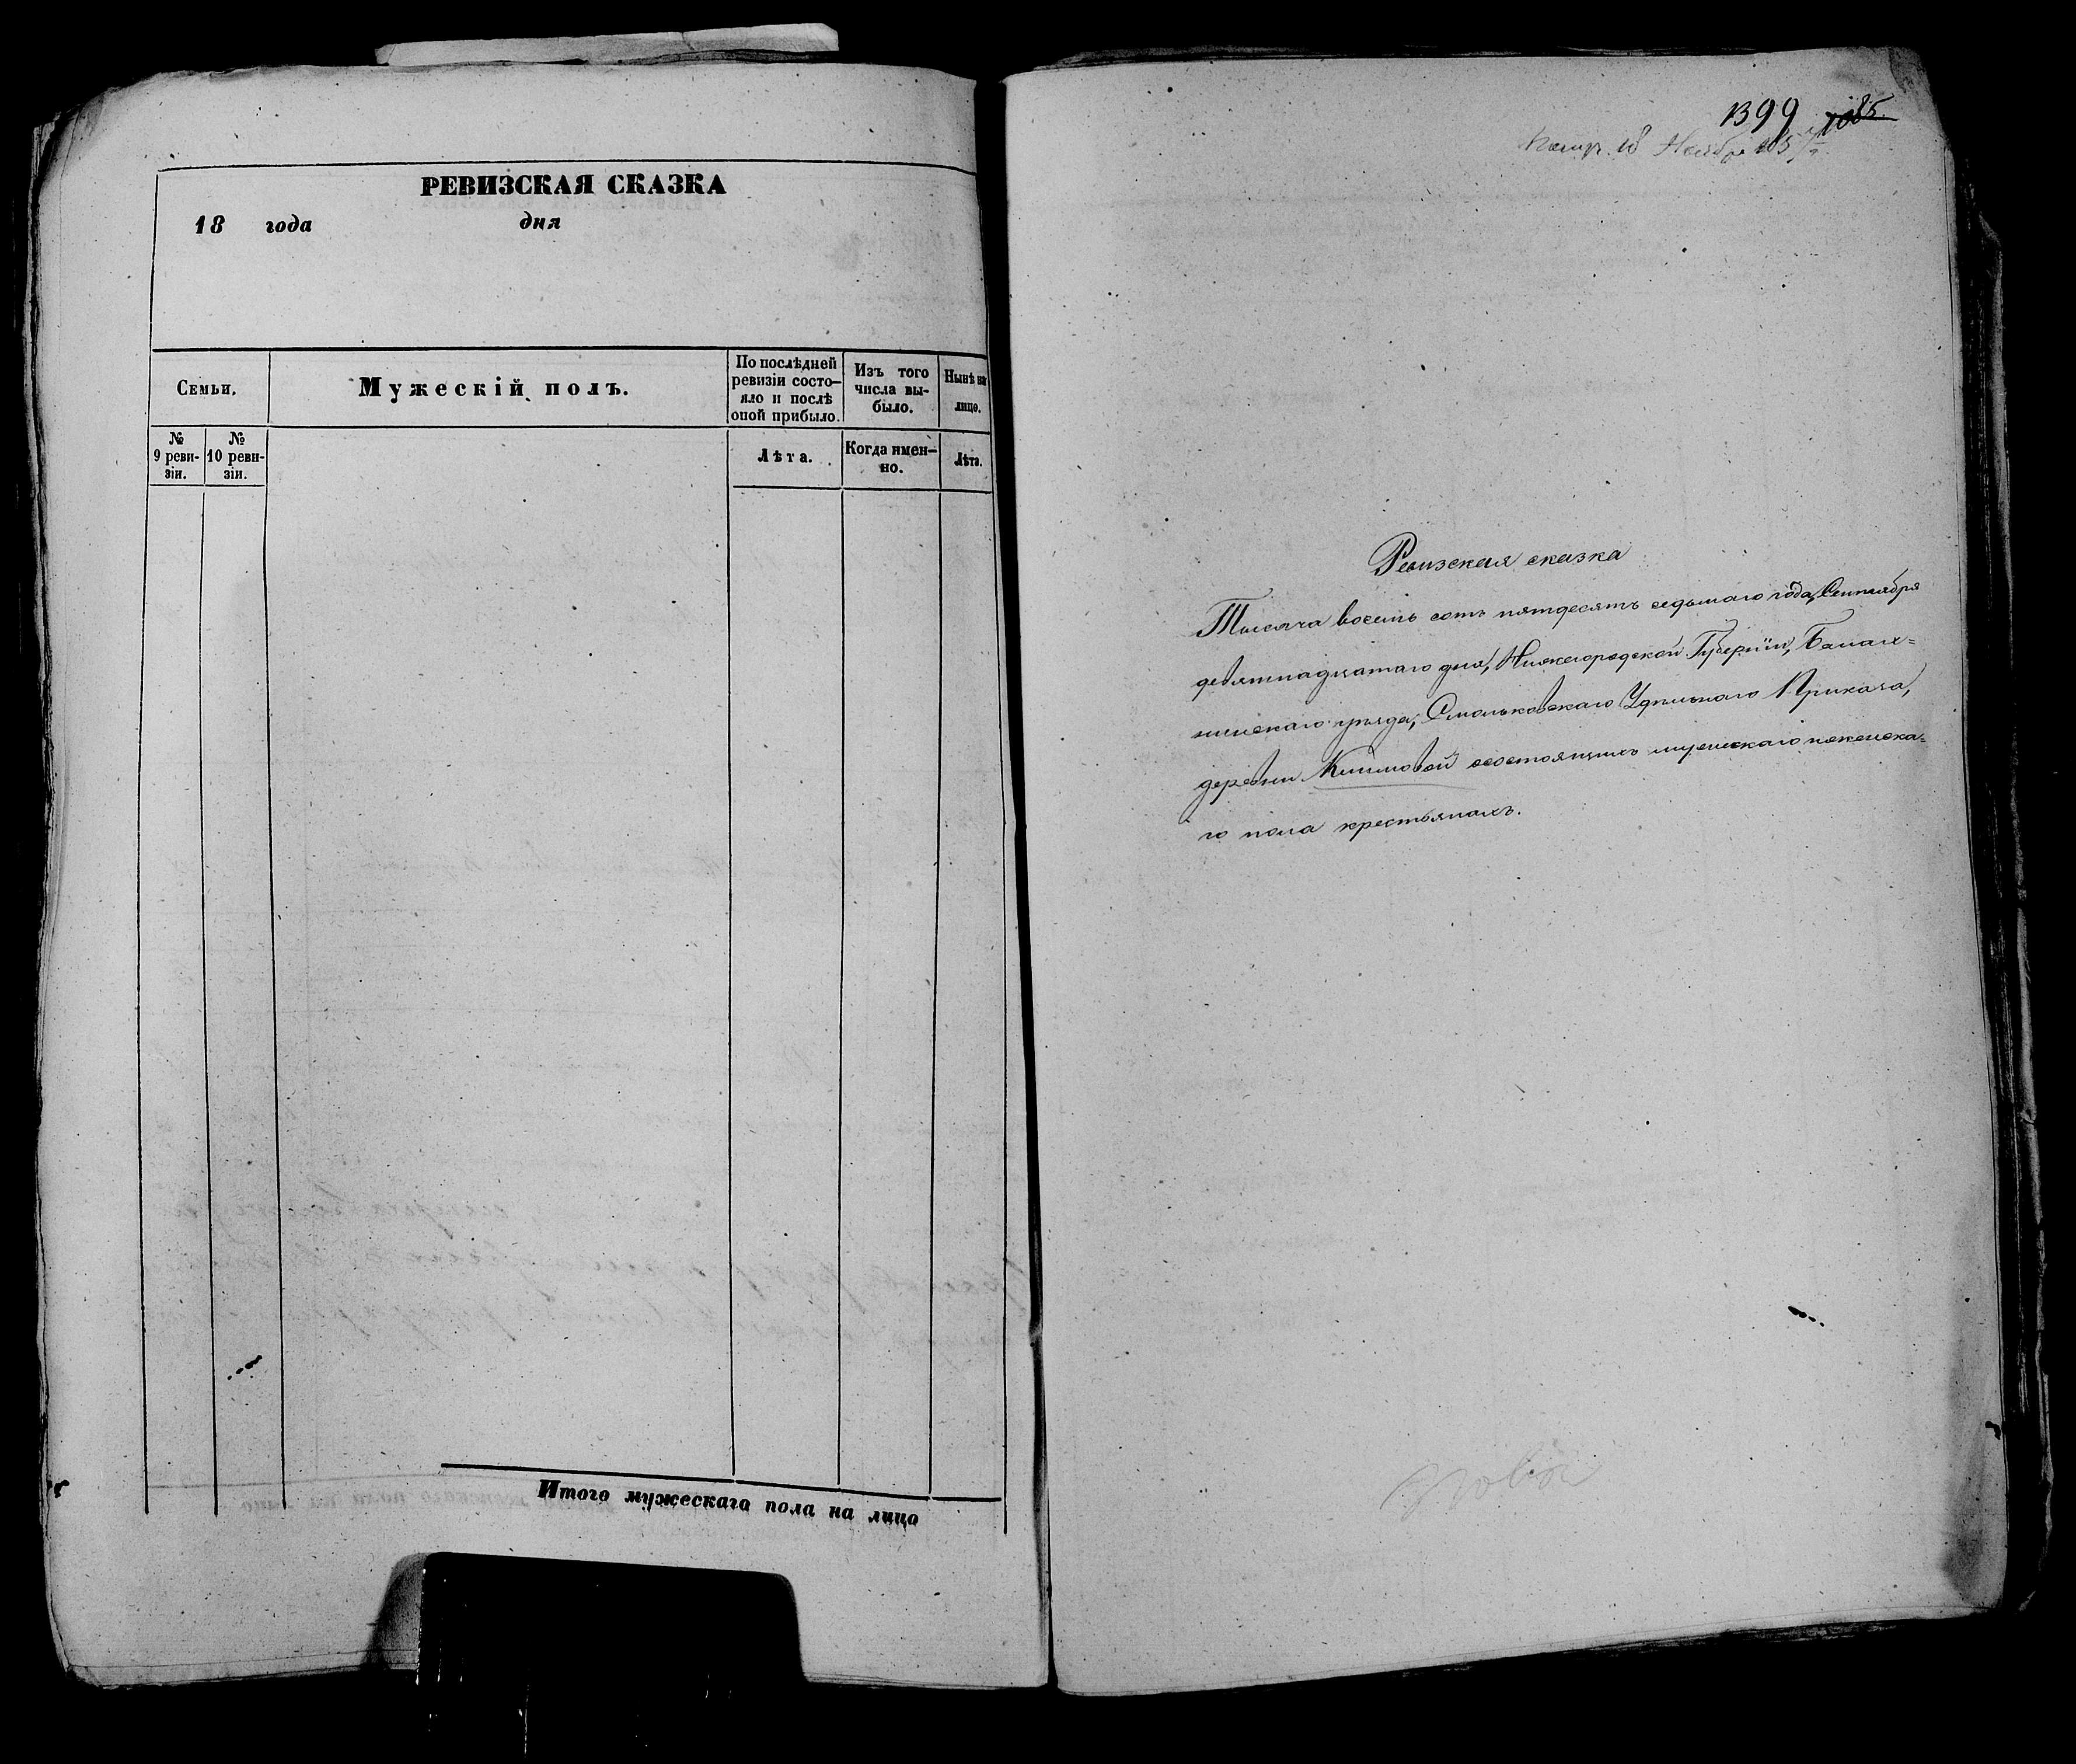 РЕВИЗСКАЯ СКАЗКА
18 года дня
Семьи.
Мужескій полъ.
По послѣдней
ревизіи состо-
яло и послѣ
оной прибыло.
Изъ того
числа вы-
было.
Нынѣ на
лицо.
№
9 реви-
зіи.
№
10 реви-
зіи.
Лѣта.
Когда имен-
но.
Лѣта.
Итого мужескаго пола на лицо
1399 1085.
18 Ноября
Ревизская сказка
Тысяча восемь сотъ пятдесятъ седьмаго года, Сентября
девятнадцатаго дня, Нижегородской Губерніи, Балах=
нинскаго уѣзда, Смольковскаго Удѣльнаго Приказа,
деревни состоящихъ мужескаго и женска=
го пола крестьянахъ.